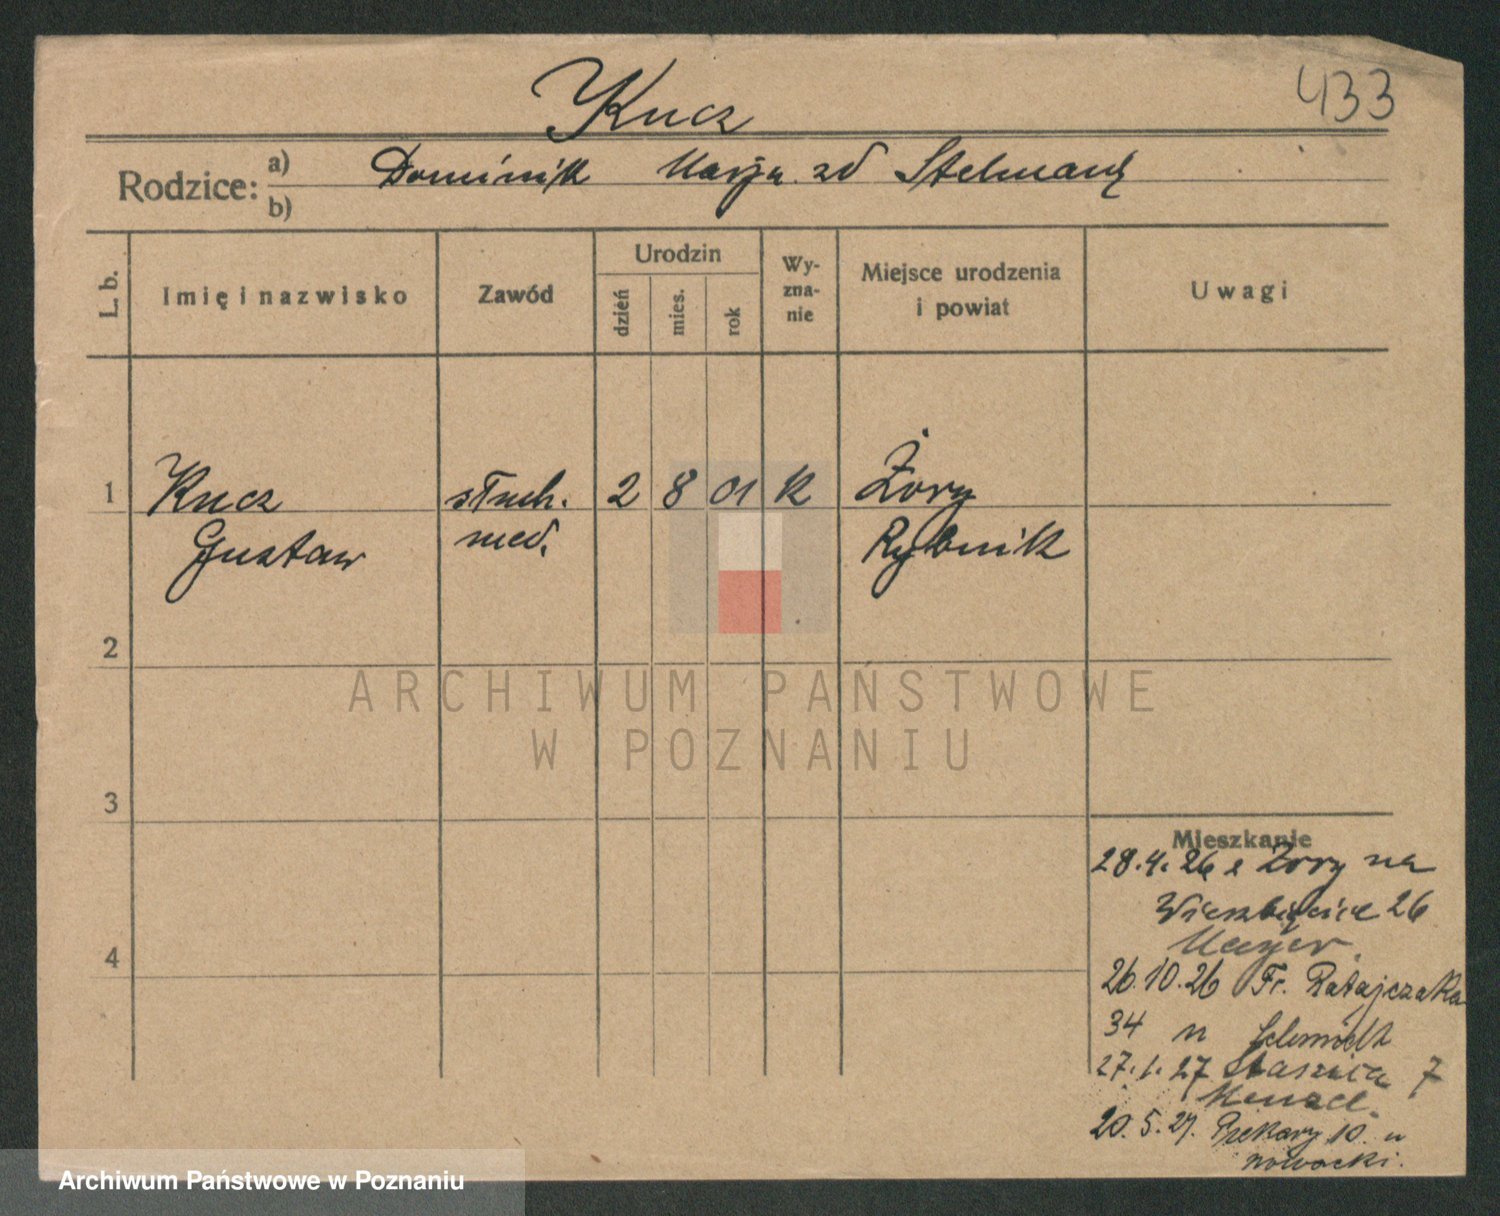 433
Kucz
Rodzice: a) Dominik Marja zd Stelmach
b)
L. b.
Imię i nazwisko
Zawód
Urodzin
dzień
mies.
rok
Wy-
zna-
nie
Miejsce urodzenia
i powiat
Uwagi
1 Kucz słuch. 2 8 01 k Żory
Gustaw med. Rybnik
2
3
4
ARCHIWUM PAŃSTWOWE
W POZNANIU
Mieszkanie
28.4.26 z Żory na
Wierzbięcice 26
Mayer
26.10.26 Fr. Ratajczaka
34 u Schmidt
27.1.27 Staszica 7
Menzel
20.5.27. Piekary 10. u
Nowacki.
Archiwum Państwowe w Poznaniu